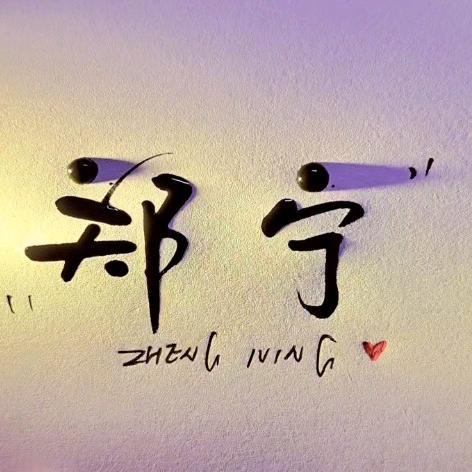 郑宁
ZHENG NING